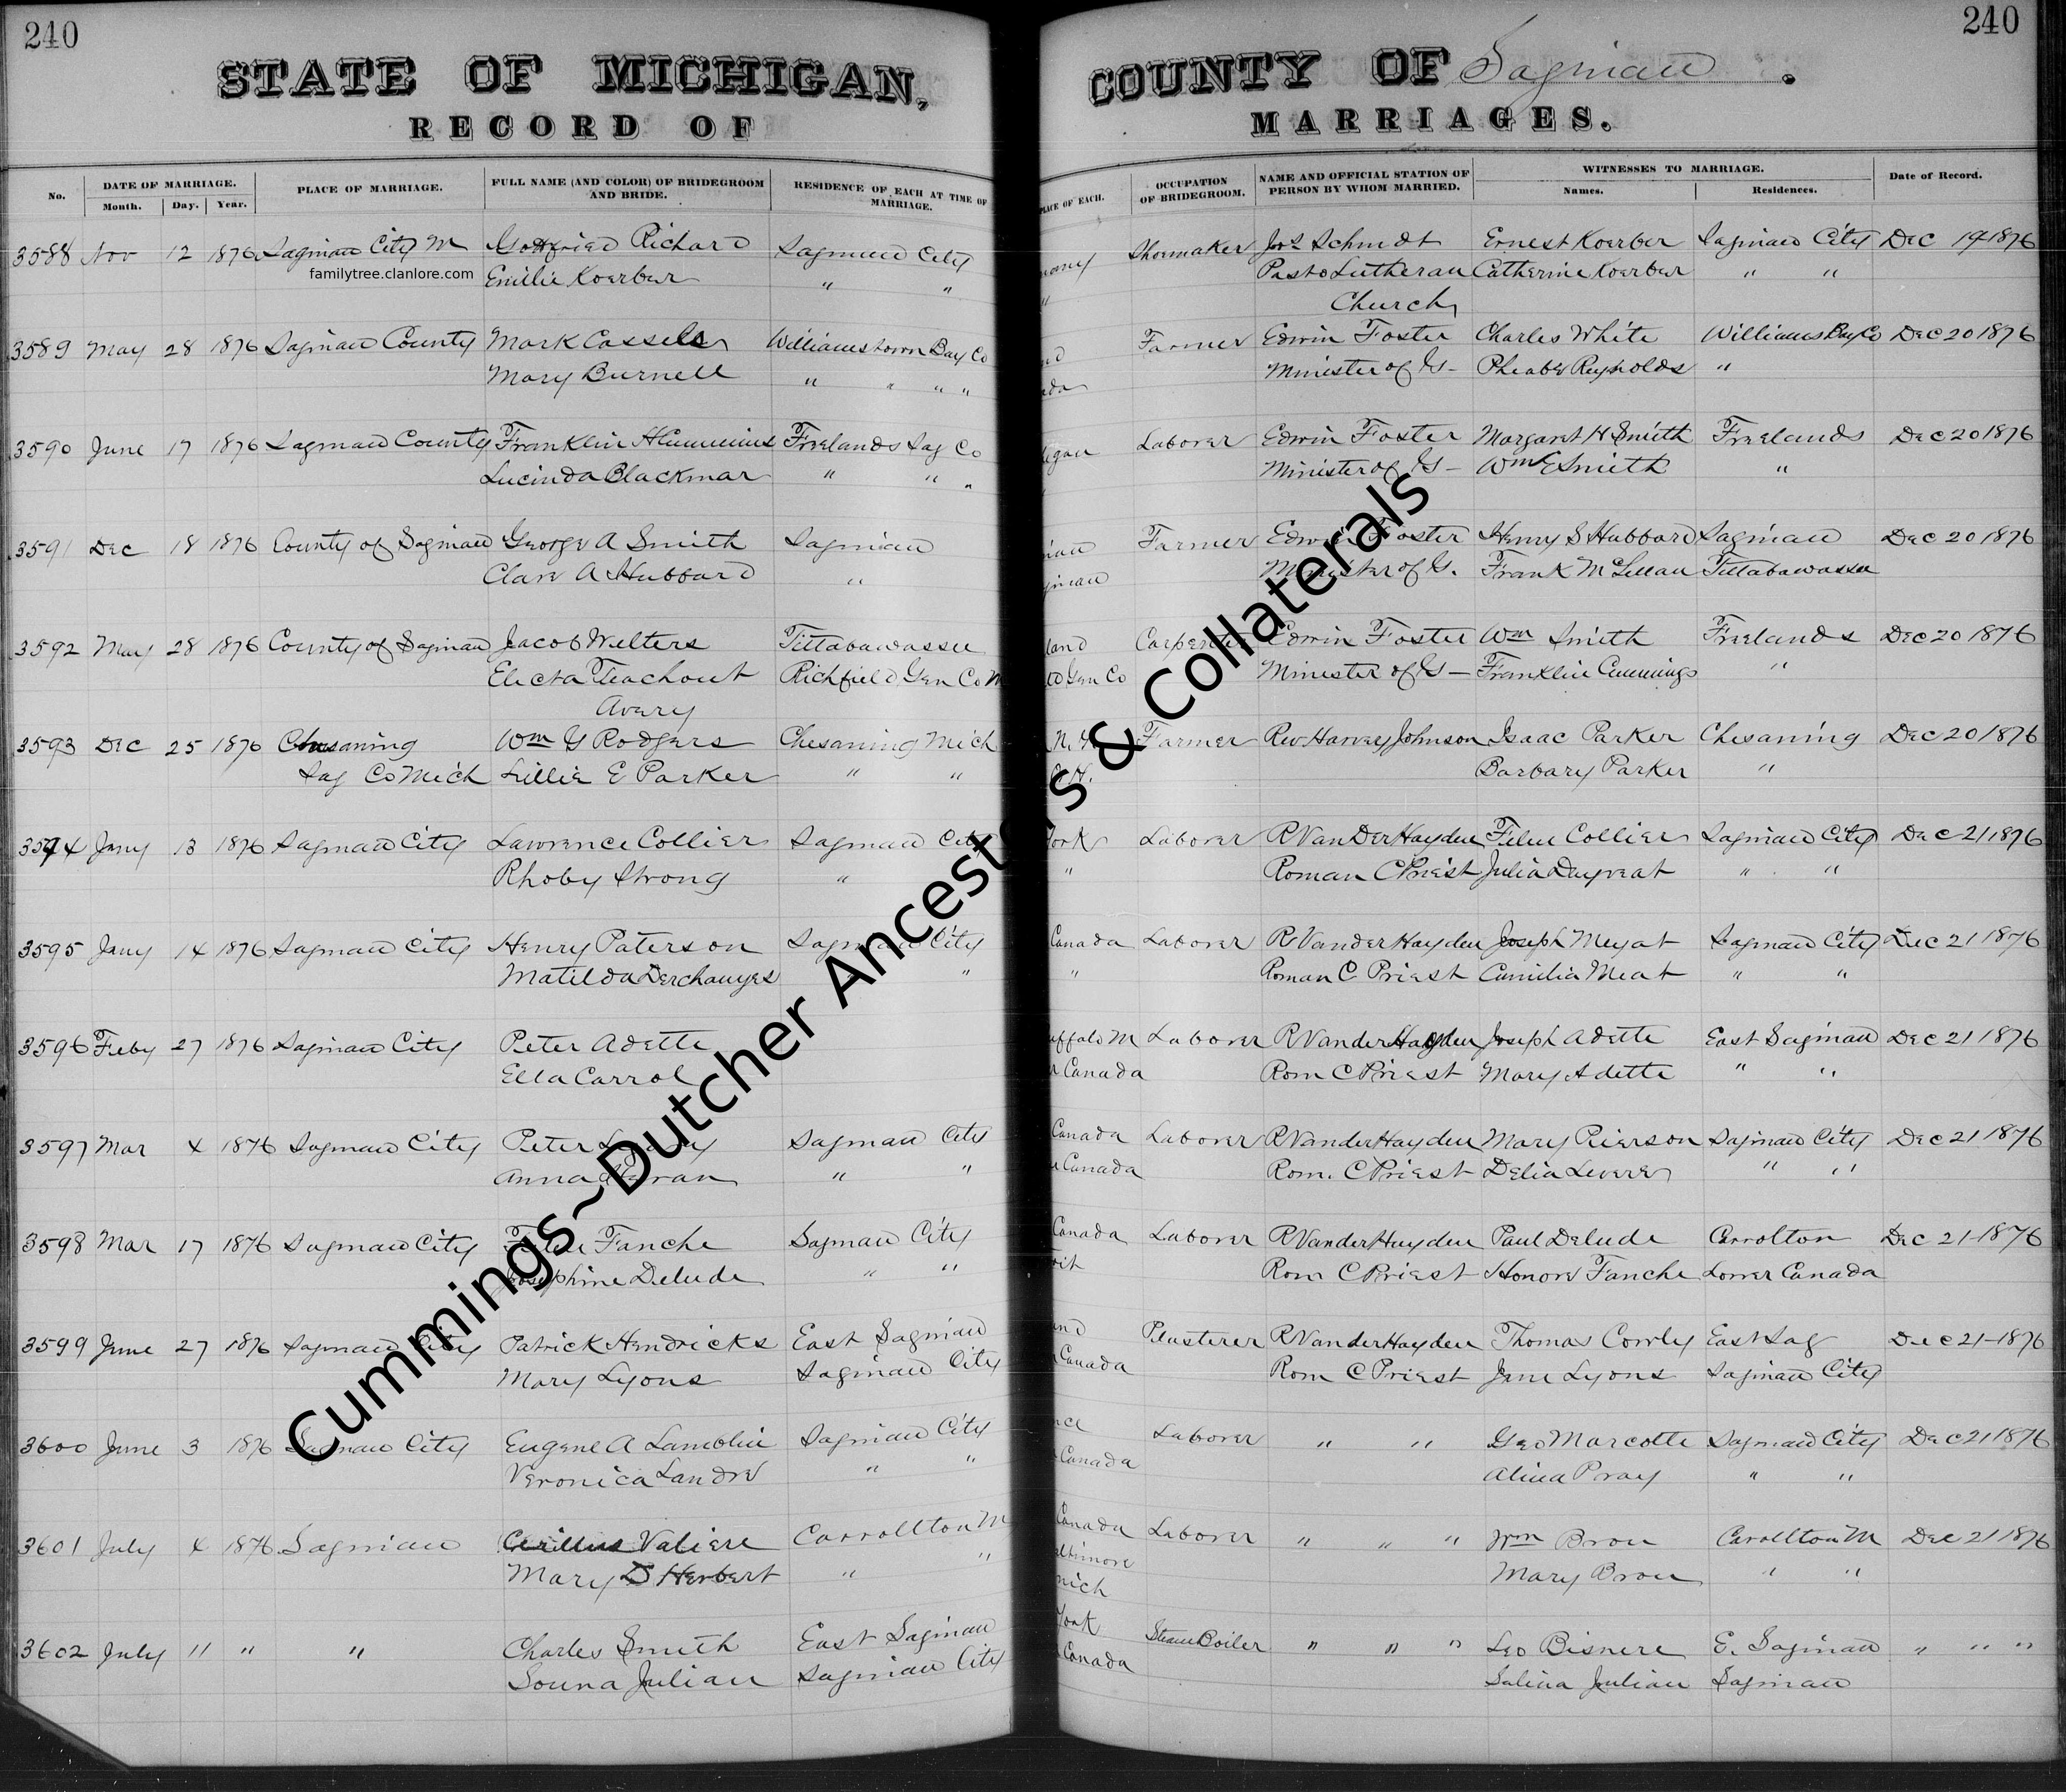 240
240
STATE OF MICHIGAN,
COUNTY OF Saginaw.
RECORD OF
MARRIAGES.
No. DATE OF MARRIAGE. PLACE OF MARRIAGE. FULL NAME (AND COLOR) OF BRIDEGROOM AND BRIDE. RESIDENCE OF EACH AT TIME OF MARRIAGE. PLACE OF EACH. OCCUPATION OF BRIDEGROOM. NAME AND OFFICIAL STATION OF PERSON BY WHOM MARRIED. WITNESSES TO MARRIAGE. Date of Record.
Month. Day. Year. Names. Residences.
3588 Nov 12 1876 Saginaw City M Gottfried Richard Saginaw City Shoemaker Jos Schmidt Ernest Koerber Saginaw City Dec 19 1876
familytree.clanlore.com
Emilie Koerber " " Pastor Lutheran Catherine Koerber " "
Church
3589 May 28 1876 Saginaw County Mark Cassels Williamstown Bay Co Farmer Edwin Foster Charles White Williams Bay Co Dec 20 1876
Mary Burnell " " " " ada Minister of G- Pheabe Reynolds "
3590 June 17 1876 Saginaw County Franklin H Cummins Freelands Sag Co igan Laborer Edwin Foster Margaret H Smith Freelands Dec 20 1876
Lucinda Blackmar " " " Minister of G- Wm E Smith "
3591 Dec 18 1876 County of Saginaw George A Smith Saginaw Farmer Edwin Foster Henry S Hubbard Saginaw Dec 20 1876
Clare A Hubbard " ginaw Minister of G. Frank McLellan Tittabawassee
3592 May 28 1876 County of Saginaw Jacob Welters Tittabawassee land Carpenter Edwin Foster Wm Smith Freelands Dec 20 1876
Electa Teachout Richfield Gen Co M Gen Co Minister of G- Franklin Cummings "
Avery
3593 Dec 25 1876 Chesaning Wm G Rodgers Chesaning Mich Farmer Rev Harvey Johnson Isaac Parker Chesaning Dec 20 1876
Sag Co Mich Lillie E Parker " " Barbary Parker "
3594 Jany 13 1876 Saginaw City Lawrence Collier Saginaw City York Laborer R Van Der Hayden Felix Collier Saginaw City Dec 21 1876
Rhoby Strong " " Roman C Priest Julia " "
3595 Jany 14 1876 Saginaw City Henry Paterson Saginaw City Canada Laborer R Vander Hayden Joseph Meyat Saginaw City Dec 21 1876
Matilda " " Roman C Priest Meat " "
3596 Feby 27 1876 Saginaw City Peter Adette uffalo M Laborer R Vander Hayden Joseph Adette East Saginaw Dec 21 1876
Ella Carrol Canada Rom C Priest Mary Adette " "
3597 Mar 4 1876 Saginaw City Peter Saginaw City Canada Laborer R Vander Hayden Mary Pierson Saginaw City Dec 21 1876
Anna " " Canada Rom. C Priest Delia " "
3598 Mar 17 1876 Saginaw City Fanche Saginaw City Canada Laborer R Vander Hayden Paul Delude Carrolton Dec 21-1876
Josephine Delude " " oit Rom C Priest Honore Fanche Lower Canada
3599 June 27 1876 Saginaw City Patrick Hendricks East Saginaw Plasterer R Vander Hayden Thomas Cowly East Sag Dec 21-1876
Mary Lyons Saginaw City Canada Rom C Priest Jane Lyons Saginaw City
3600 June 3 1876 Saginaw City Eugene A Lamblin Saginaw City Laborer " " Geo Marcotte Saginaw City Dec 21 1876
Veronica Landre " " Canada Alina Pray " "
3601 July 4 1876 Saginaw Valiere Carrollton M Canada Laborer " " " Wm Brou Carollton M Dec 21 1876
Mary D Herbert " " altimore Mary Brou " "
mich
3602 July 11 " " Charles Smith East Saginaw York Steam Boiler " " " Leo Bisnere E. Saginaw " " "
Louna Julian Saginaw City Canada Salina Julian Saginaw
Cummings~Dutcher Ancestors & Collaterals